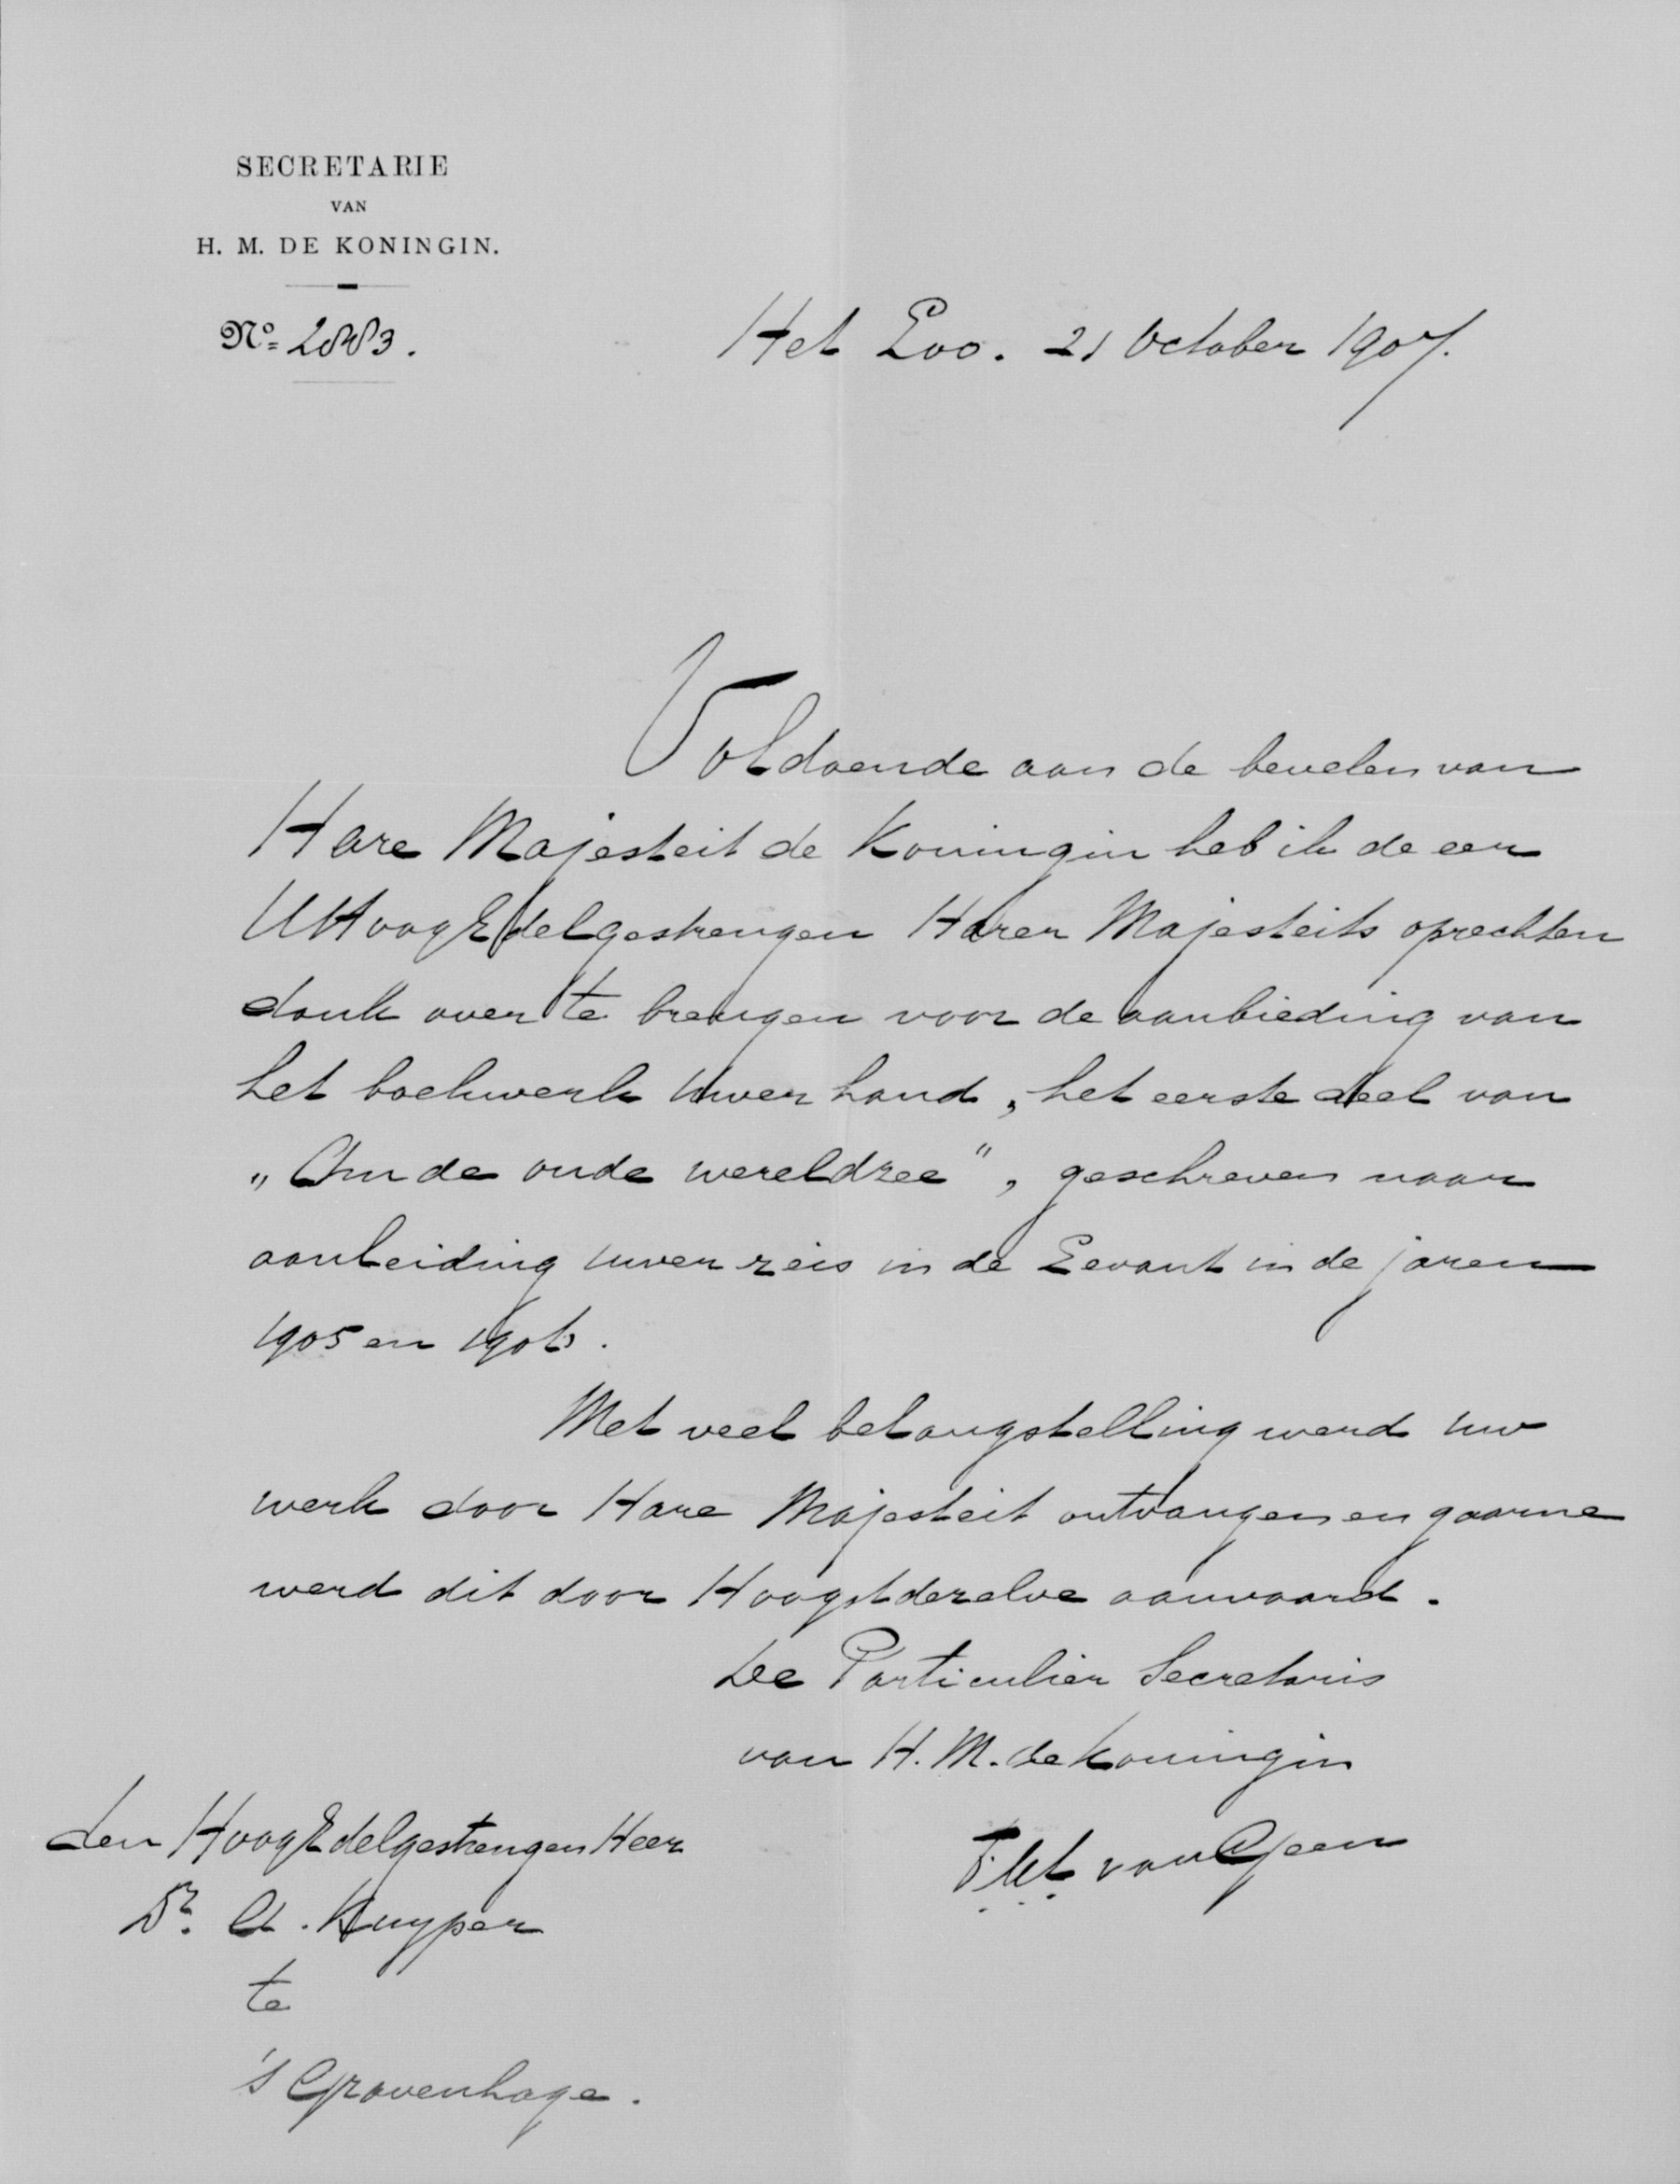 SECRETARIE
VAN
H. M. DE KONINGIN.
No.
Het Loo. 21 October 1907.
Voldoende aan de bevelen van
Hare Majesteit de Koningin heb ik de eer
UHoogEdelgestrengen Harer Majesteits oprechten
dank over te brengen voor de aanbieding van
het boekwerk Uwer hand, het eerste deel van
„Om de oude wereldzee", geschreven naar
aanleiding uwer reis in de Levant in de jaren
1905 en 1906.
Met veel belangstelling werd uw
werk door Hare Majesteit ontvangen en gaarne
werd dit door Hoogstdezelve aanvaard.
De Particulier Secretaris
van H. M. de Koningin
van Geen
den HoogEdelgestrengen Heer
Dr. A. Kuyper
te
's Gravenhage.